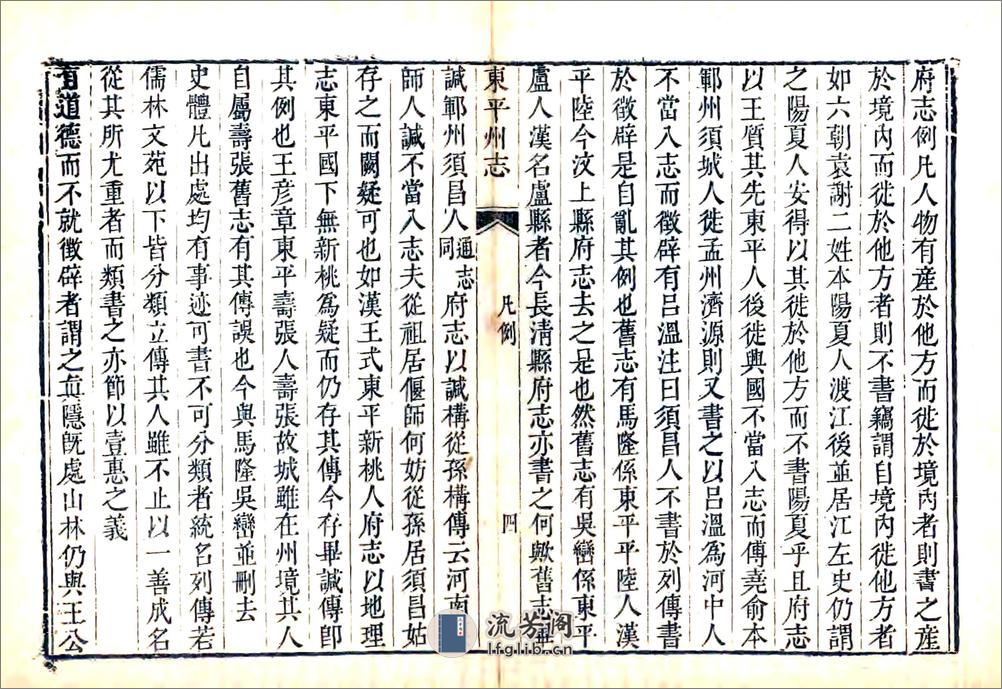 府志例凡人物有產於他方而徙於境內者則書之產
於境內而徙於他方者則不書竊謂自境內徙他方者
如六朝袁謝二姓本陽夏人渡江後並居江左史仍謂
之陽夏人安得以其徙於他方而不書陽夏乎且府志
以王質其先東平人後徙興國不當入志而傅堯俞本
鄆州須城人徙孟州濟源則又書之以呂溫為河中人
不當入志而徵辟有呂溫注曰須昌人不書於列傳書
於徵辟是自亂其例也舊志有馬隆係東平平陸人漢
平陸今汶上縣府志去之是也然舊志有吳巒係東平
盧人漢名盧縣者今長清縣府志亦書之何歟舊志畢
東平州志
凡例
四
諴鄆州須昌人通志同府志以諴構從孫構傳云河南偃
師人諴不當入志夫從祖居偃師何妨從孫居須昌姑
存之而闕疑可也如漢王式東平新桃人府志以地理
志東平國下無新桃為疑而仍存其傳今存畢諴傳即
其例也王彥章東平壽張人壽張故城雖在州境其人
自屬壽張舊志有其傳誤也今與馬隆吳巒並刪去
史體凡出處均有事迹可書不可分類者統名列傳若
儒林文苑以下皆分類立傳其人雖不止以一善成名
從其所尤重者而類書之亦節以壹惠之義
有道德而不就徵辟者謂之真隱既處山林仍與王公
流芳閣
lfglib.cn